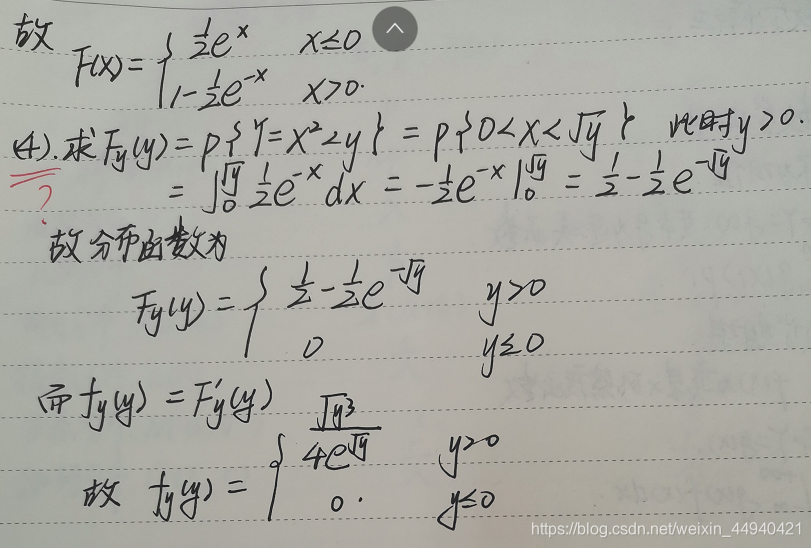 故
F(x) = { ½eˣ x≤0
1-½e⁻ˣ x>0.
(4). 求 Fy(y) = P{Y=X²<y} = P{0<X<√y} 此时 y>0.
?
= ∫₀^√y ½e⁻ˣ dx = -½e⁻ˣ |₀^√y = ½-½e^-√y
故分布函数为
Fy(y) = { ½-½e^-√y y>0
0 y≤0
而 fy(y) = F'y(y)
故 fy(y) = { √y³/4e^√y y>0
0. y≤0
https://blog.csdn.net/weixin_44940421